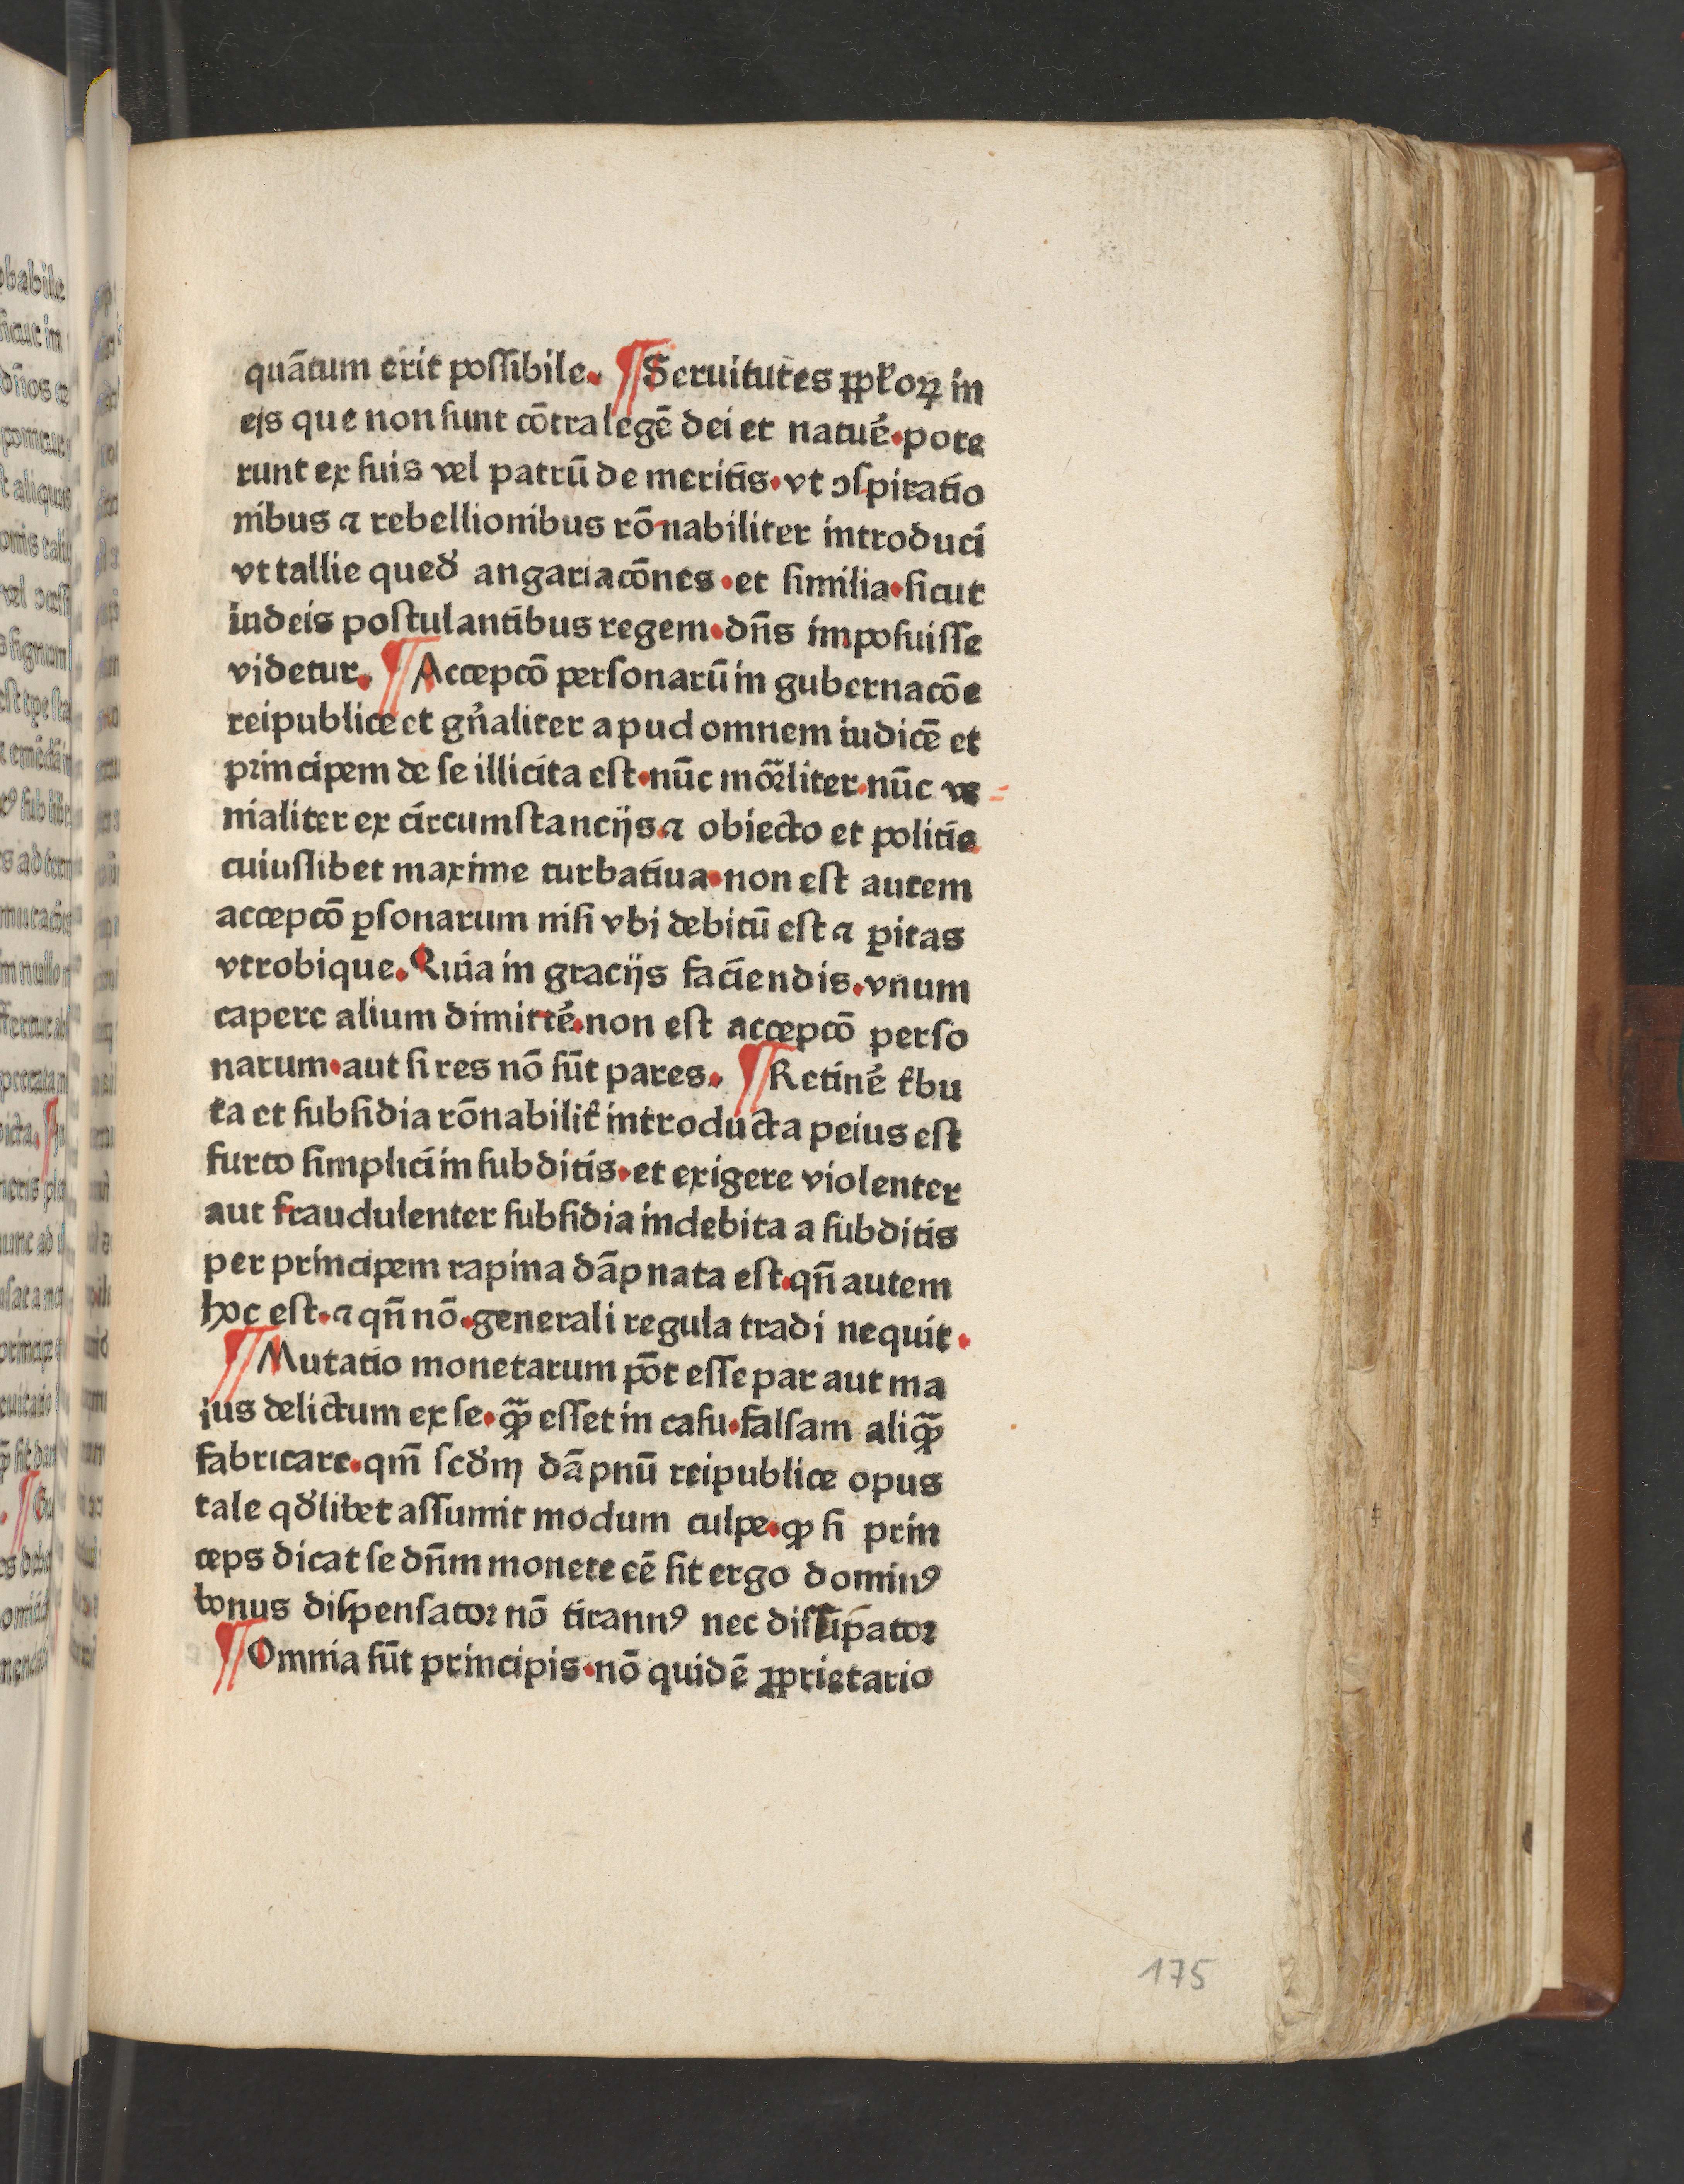 quātum erit poſſibile. ¶ Seruitutes ꝓpl'oꝝ in
ejs que non ſunt cōtra legē dei et natue᷑. pote
runt ex ſuis vel patrū de meritis. vt ↄſpiratio
nibus ⁊ rebellionibus rōnabiliter introduci
vt tallie qued' angariacōnes. et ſimilia. ſicut
iudeis poſtulantibus regem. dn̄s impoſuiſſe
videtur. ¶ Accepcō perſonarū in gubernacōe
reipublice et gn̄aliter apud omnem iudicē et
principem de ſe illicita eſt. nūc mōrliter. nūc ve
nialiter ex circumſtancijs. ⁊ obiecto et politie
cuiuſlibet maxime turbatiua. non eſt autem
accepcō ꝑſonarum niſi vbi debitū eſt ⁊ ꝑitas
vtrobique. Quia in gracijs faciendis. vnum
capere alium dimitte᷑. non eſt accepcō perſo
narum. aut ſi res nō ſūt pares. ¶ Retine᷑ t'bu
ta et ſubſidia rōnabilit' introducta peius eſt
furto ſimplici in ſubditis. et exigere violenter
aut fraudulenter ſubſidia indebita a ſubditis
per principem rapina dāpnata eſt. qn̄ autem
hoc eſt. ⁊ qn̄ nō. generali regula tradi nequit.
¶ Mutatio monetarum pōt eſſe par aut ma
jus delictum ex ſe. ꝙ̄ eſſet in caſu. falſam aliꝙ̄
fabricare. qm̄ ſcd'm dāpnū reipublice opus
tale qd'libet aſſumit modum culpe. ꝙ ſi prin
ceps dicat ſe dn̄m monete eē ſit ergo dominꝰ
bonus diſpenſator nō tirannꝰ nec diſſipator
¶ Omnia ſūt principis. nō quidē ꝓprietario
175